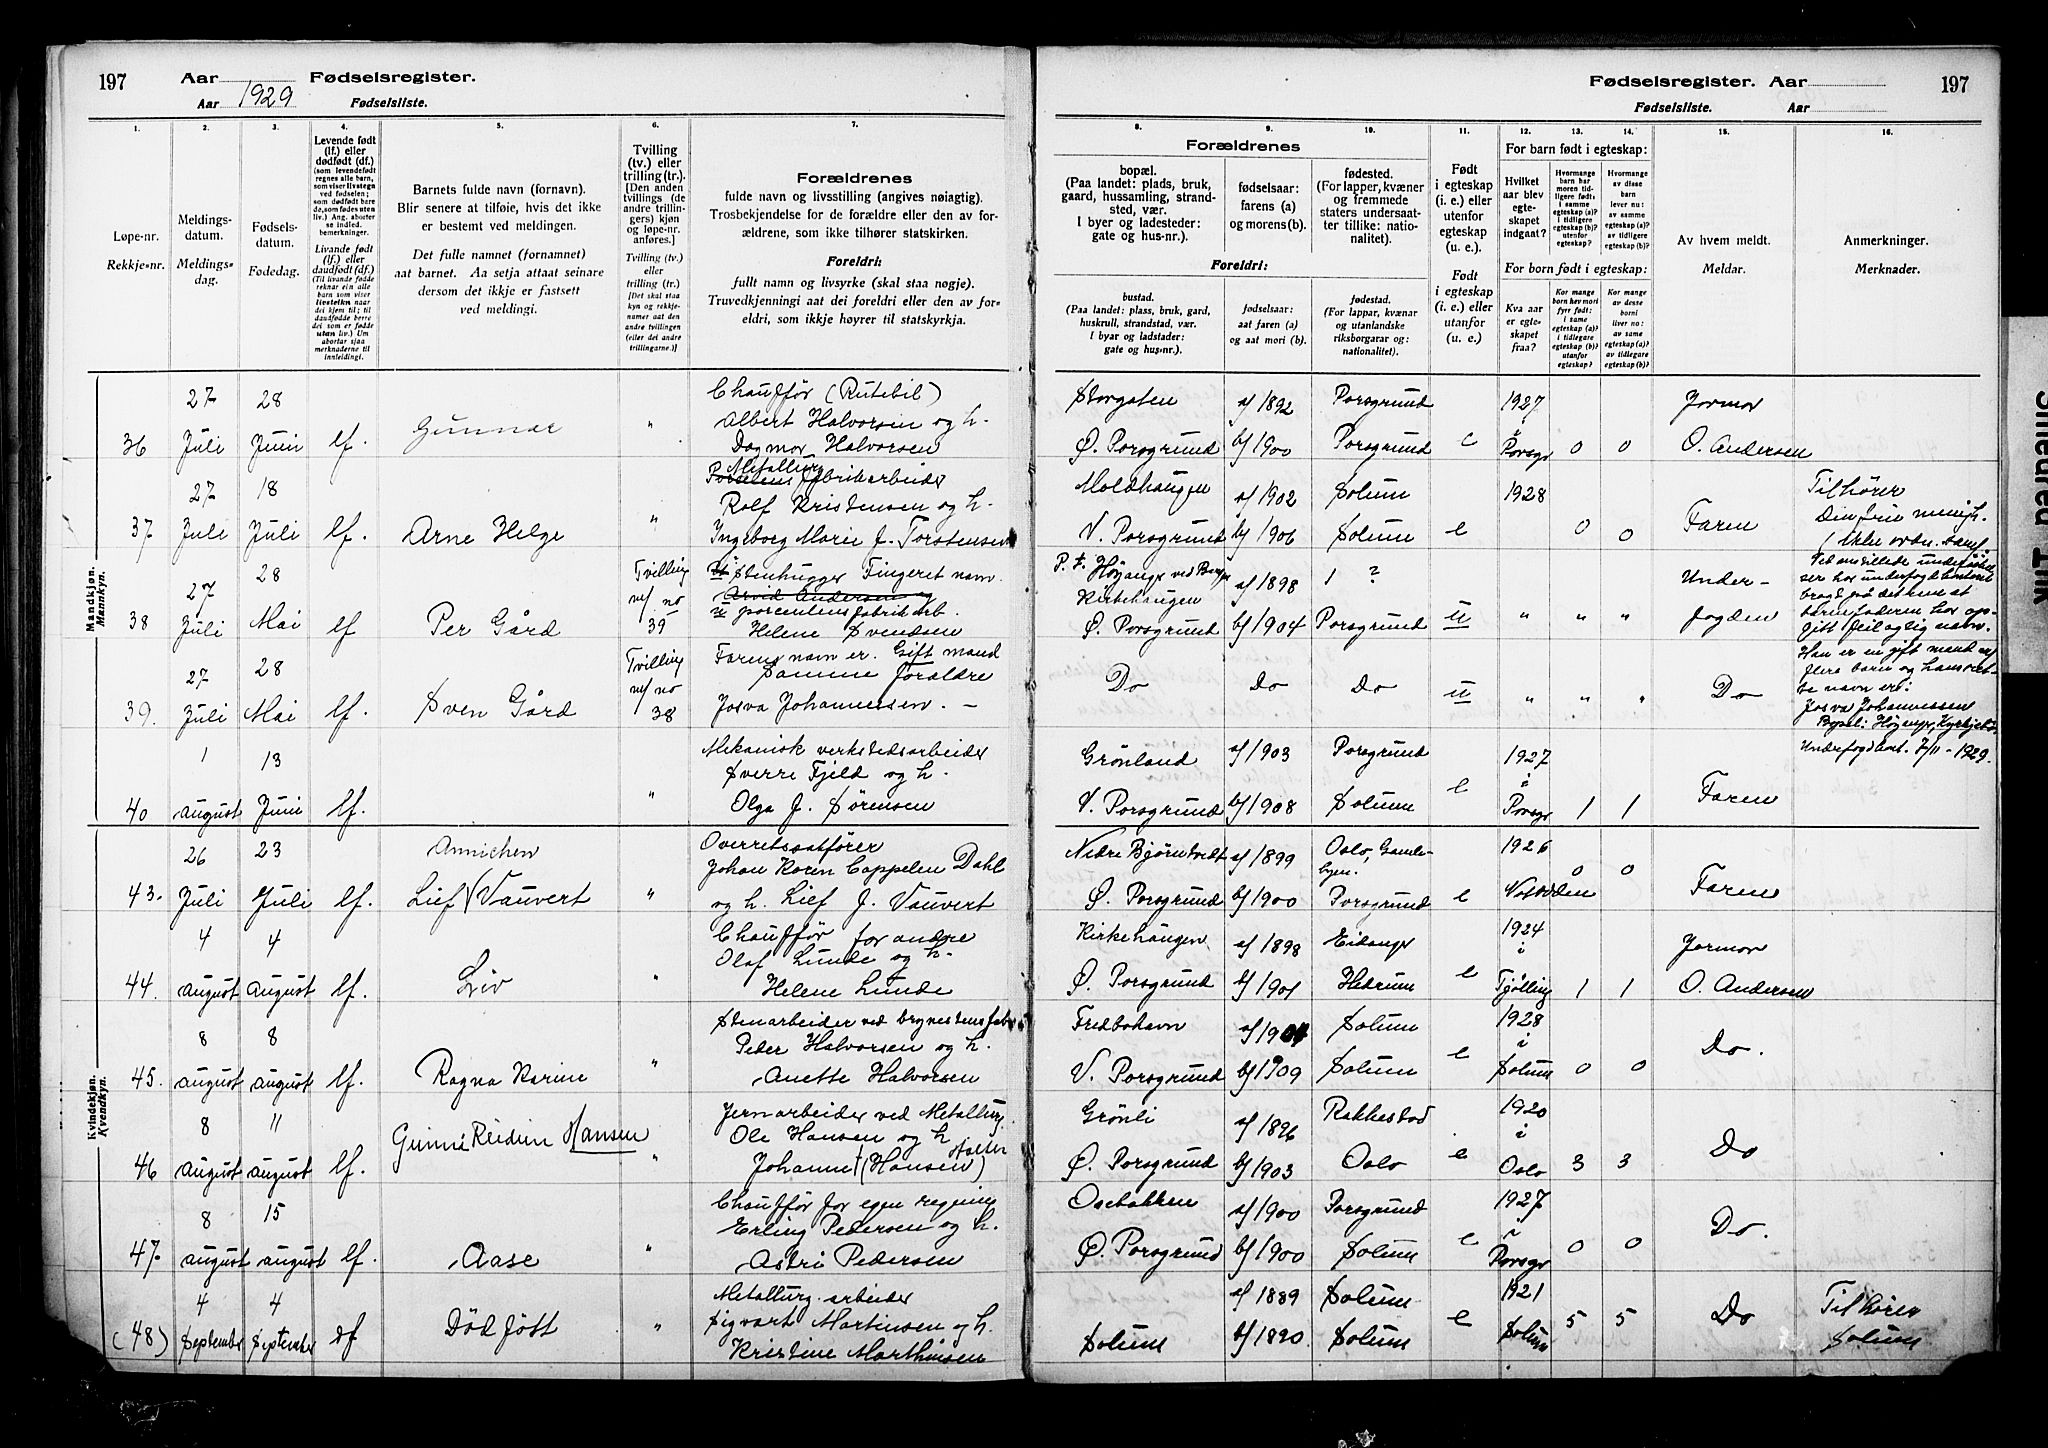 197 Aar Fødselsregister.
Aar 1929 Fødselsliste.
Fødselsregister. Aar 197
Fødselsliste. Aar
1. 2. 3. 4. 5. 6. 7.
Løpe-nr.
Rekkje-nr.
Meldings-
datum.
Meldings-
dag.
Fødsels-
datum.
Fødedag.
Levende født
(lf.) eller
dødfødt (df.)
(som levendefødt
regnes alle barn,
som viser livstegn
ved fødselen;
som dødfødt bare
de, som fødes uten
liv.) Ang. aborter
se indled.
bemerkninger.
Livande født
(lf.) eller
daudfødt (df.)
(Til livande fødde
reknar ein alle
barn som viser
livsteikn naar
dei kjem til; til
daudfødde berre
dei som er fødde
utan liv.) Um
abortar sjaa
merknaderne til
innleiding).
Barnets fulde navn (fornavn).
Blir senere at tilføie, hvis det ikke
er bestemt ved meldingen.
Det fulle namnet (fornamnet)
aat barnet. Aa setja attaat seinare
dersom det ikkje er fastsett
ved meldingi.
Tvilling
(tv.) eller
trilling (tr.).
[Den anden
tvillings (de
andre trillin-
gers) kjøn
og løpe-nr.
anføres.]
Tvilling (tv.)
eller
trilling (tr.)
[Det skal staa
kyn og rekkje-
numer aat den
andre tvillingen
(eller dei andre
trillingarne.)]
Forældrenes
fulde navn og livsstilling (angives nøiagtig).
Trosbekjendelse for de forældre eller den av for-
ældrene, som ikke tilhører statskirken.
Foreldri:
fullt namn og livsyrke (skal staa nøgje).
Truvedkjenningi aat dei foreldri eller den av for-
eldri, som ikkje høyrer til statskyrkja.
8. 9. 10. 11. 12. 13. 14. 15. 16.
Forældrenes
bopæl.
(Paa landet: plads, bruk,
gaard, hussamling, strand-
sted, vær.
I byer og ladesteder:
gate og hus-nr.).
fødselsaar:
farens (a)
og morens (b).
fødested.
(For lapper, kvæner
og fremmede
staters undersaat-
ter tillike: natio-
nalitet).
Foreldri:
bustad.
(Paa landet: plass, bruk, gard,
huskrull, strandstad, vær.
I byar og ladstader:
gate og hus-nr.).
fødselsaar:
aat faren (a)
og aat mori (b).
fødestad.
(For lappar, kvænar
og utanlandske
riksborgarar og:
nationalitet).
Født
i egteskap
(i. e.) eller
utenfor
egteskap
(u. e.).
Født
i egteskap
(i. e.) eller
utanfor
(u. e.).
For barn født i egteskap:
Hvilket
aar blev
egte-
skapet
indgaat?
Hvormange
barn har
moren tid-
ligere født:
i samme
egteskap (a)?
i tidligere
egteskap (b)?
utenfor
egteskap?
Hvormange
av disse
barn
lever nu:
av samme
egteskap (a)?
av tidligere
egteskap (b)?
For born født i egteskap:
Kva aar
er egte-
skapet
fraa?
Kor mange
born hev mori
fyrr født:
i same
egteskap (a)?
i tidlegare
egteskap (b)?
utanfor
egteskap?
Kor mange
av desse
borni
liver no:
av same
egteskap (a)?
av tidlegare
egteskap (b)?
Av hvem meldt.
Meldar.
Anmerkninger.
Merknader.
Mandkjøn.
Mannkyn.
36 27 Juli 28 Juni lf. Gunnar "
Chauffør (Rutebil)
Albert Halvorsen og h.
Dagmar Halvorsen
Storgaten Ø. Porsgrund af 1892 bf 1900 Porsgrund Porsgrund e 1927 i Porsgr 0 0 Jormor O. Andersen
37 27 Juli 18 Juli lf. Arne Helge "
Metallurg
Porselens fabrikarbeider
Rolf Kristensen og h.
Ingeborg Marie f. Torstensen
Moldhaugen V. Porsgrund af 1902 bf 1906 Solum Solum e 1928 0 0 Faren
Tilhører
Din frie menigh.
38 27 Juli 28 Mai lf Per Gård Tvilling m/ no 39
Stenhugger Fingeret navn
Arvid Andersen og
u porcelensfabrik arb.
Helene Svendsen
P. t. Høyanger ved Bergen
Kirkehaugen Ø. Porsgrund af 1898 bf 1904 ? Porsgrund u " " " Under- fogden
Ved anstillede undersøkel-
ser har underfogdkontoret
bragt på det rene at
barnefaderen har op-
gitt feilagtig navn.
39. 27 Juli 28 Mai lf. Sven Gård Tvilling m/ no 38
Farens navn er. Gift mand
Samme foraldre
Josva Johannessen. —
Do Do Do u " " " Do
Han er en gift mand m/
flere barn og hans ret-
te navn er:
Josva Johannessen
Bopæl: Høyanger, Kyrkjebø.
Underfogdkont. 7/11 - 1929.
40 1 august 13 Juni lf. "
Mekanisk verkstedsarbeider
Sverre Fjeld og h.
Olga f. Sørensen
Grønland V. Porsgrund af 1903 bf 1908 Porsgrund Solum e 1927 i Porsgr 1 1 Faren
Kvindekjøn.
Kvendkyn.
43. 26 Juli 23 Juli lf. Annichen Lief Vauvert "
Overretssakfører
Johan Koren Cappelen Dahl
og h. Lief f. Vauvert
Nedre Bjørntvedt Ø. Porsgrund af 1899 bf 1900 Oslo, Gamle-
byen. Porsgrund e 1926 Notodden 0 0 Faren
44. 4 august 4 august lf. Liv "
Chauffør for andre
Olaf Lunde og h.
Helene Lunde
Kirkehaugen Ø. Porsgrund af 1898 bf 1901 Eidanger Hedrum e 1924 i Tjølling 1 1 Jormor O. Andersen
45. 8 august 8 august lf. Ragna Karine "
Stenarbeider ved brynestensfabr
Peder Halvorsen og h.
Anette Halvorsen
Fredbohavn V. Porsgrund af 1904 bf 1909 Solum Solum e 1928 i Solum 0 0 Do.
46 8 august 11 august lf. Gunni Reidun Hansen "
Jernarbeider ved Metallurg.
Ole Hansen og h
Johanne f (Hansen) Holter
Grønli Ø. Porsgrund af 1896 bf 1903 Rakkestad Oslo e 1920 i Oslo 3 3 Do
47. 8 august 15 august lf. Aase "
Chauffør for egen regning
Erling Pedersen og h.
Astri Pedersen
Osebakken Ø. Porsgrund af 1900 bf 1900 Porsgrund Solum e 1927 i Porsgr 0 0 Do.
(48) 4 September 4 September df Dødfött "
Metallurg. arbeider
Sigvart Martinsen og h.
Kristine Marthinsen
Solum af 1889 bf 1890 Solum Solum e 1921 Solum 5 5 Do
Tilhører
Solum